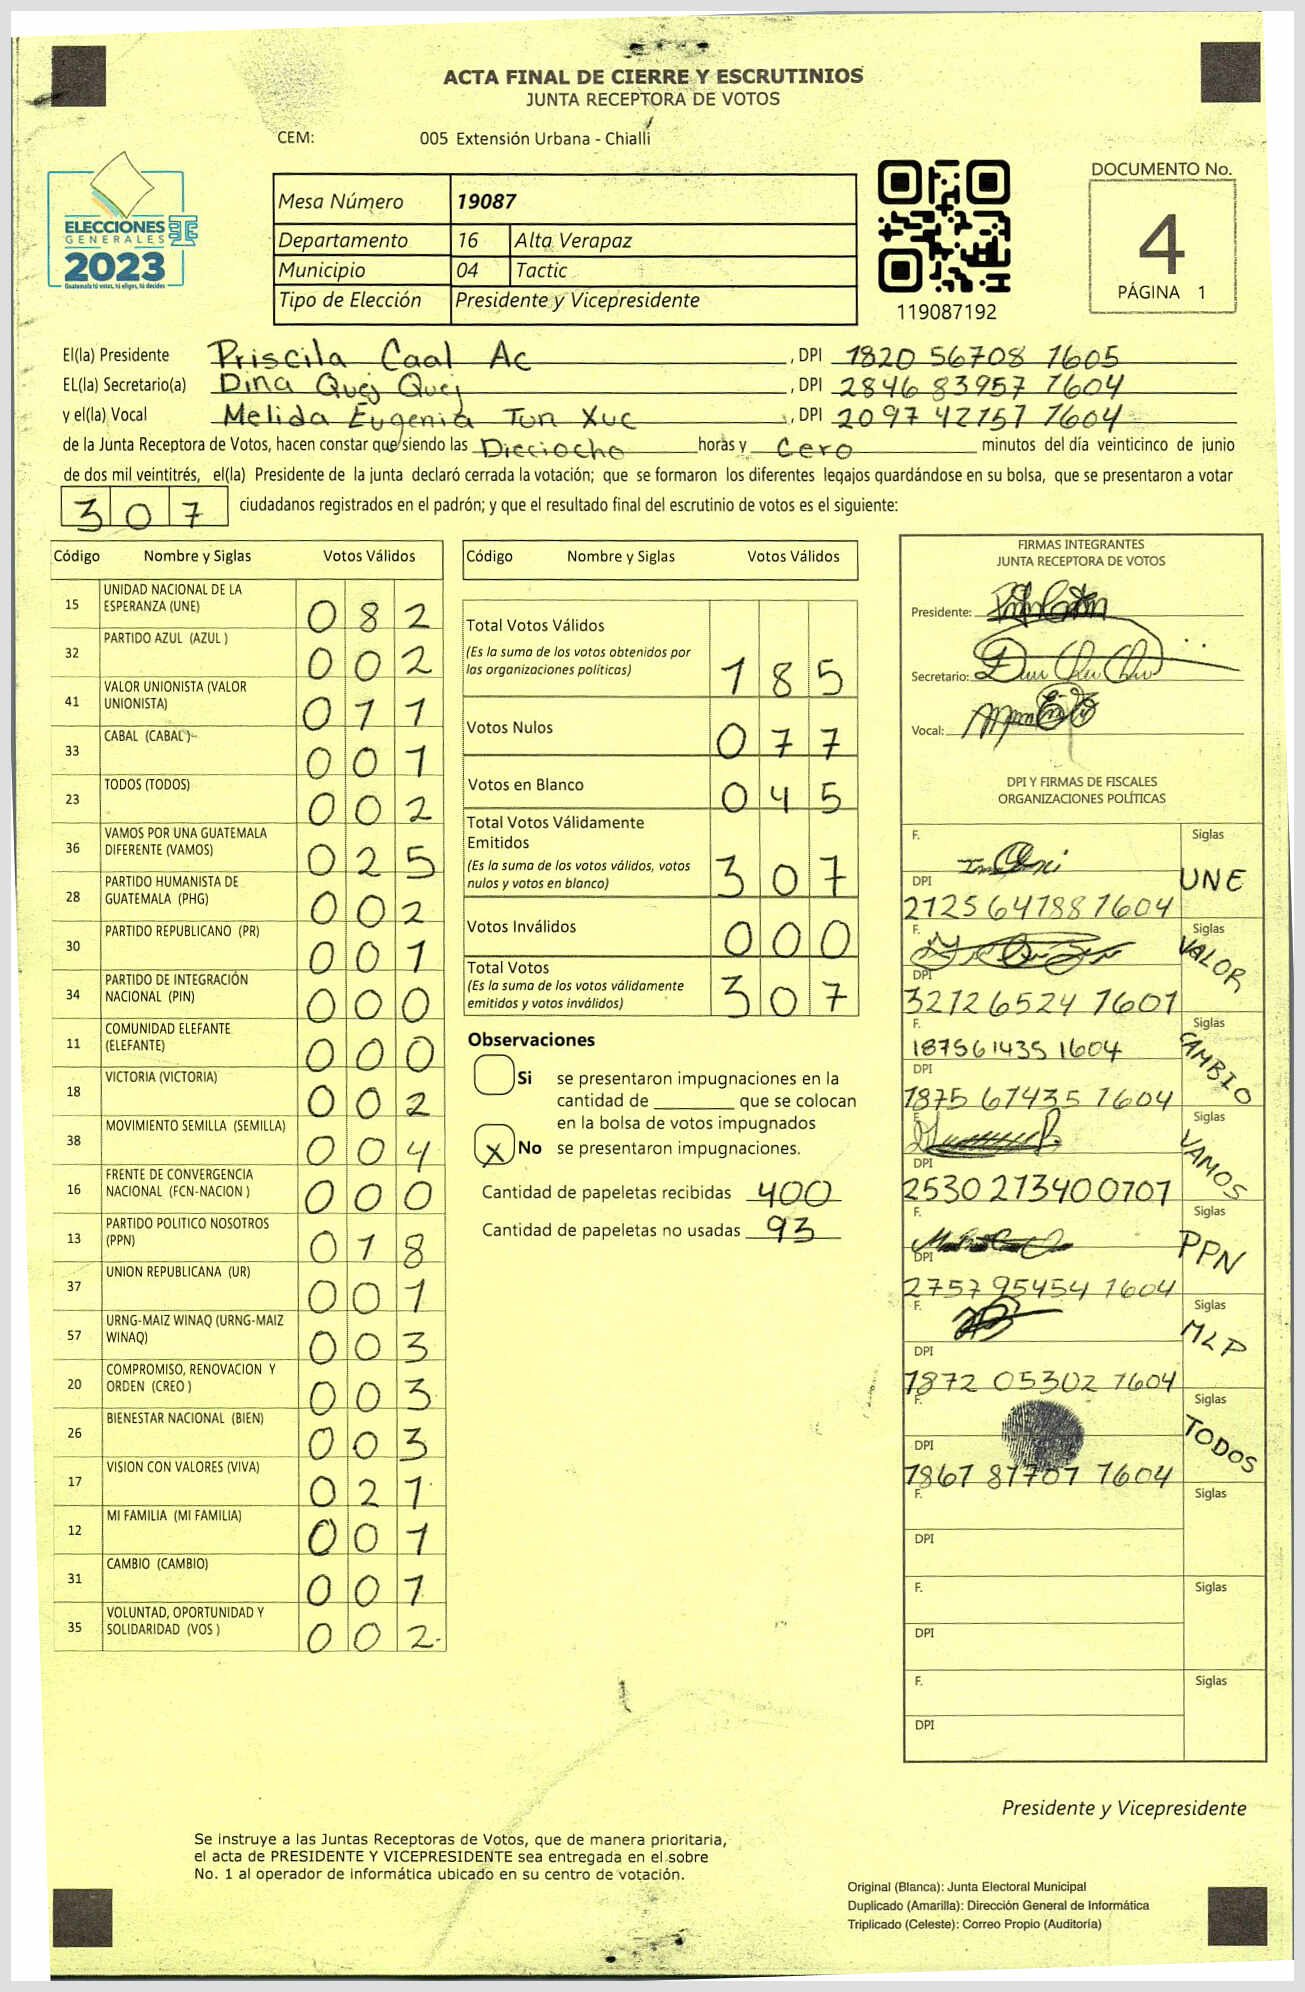 ACTA FINAL DE CIERRE Y ESCRUTINIOS
JUNTA RECEPTORA DE VOTOS
CEM: 005 Extensión Urbana - Chialli
ELECCIONES
GENERALES
2023
Guatemala tú votas, tú eliges, tú decides
Mesa Número 19087
Departamento 16 Alta Verapaz
Municipio 04 Tactic
Tipo de Elección Presidente y Vicepresidente
119087192
DOCUMENTO No.
4
PÁGINA 1
El(la) Presidente Priscila Caal Ac , DPI 1820 56708 1605
EL(la) Secretario(a) Dina Quej Quej , DPI 2846 83957 1604
y el(la) Vocal Melida Eugenia Tun Xuc , DPI 2097 42157 1604
de la Junta Receptora de Votos, hacen constar que siendo las Dieciocho horas y Cero minutos del día veinticinco de junio
de dos mil veintitrés, el(la) Presidente de la junta declaró cerrada la votación; que se formaron los diferentes legajos guardándose en su bolsa, que se presentaron a votar
307 ciudadanos registrados en el padrón; y que el resultado final del escrutinio de votos es el siguiente:
Código Nombre y Siglas Votos Válidos
15 UNIDAD NACIONAL DE LA ESPERANZA (UNE) 082
32 PARTIDO AZUL (AZUL ) 002
41 VALOR UNIONISTA (VALOR UNIONISTA) 011
33 CABAL (CABAL ) 001
23 TODOS (TODOS) 002
36 VAMOS POR UNA GUATEMALA DIFERENTE (VAMOS) 025
28 PARTIDO HUMANISTA DE GUATEMALA (PHG) 002
30 PARTIDO REPUBLICANO (PR) 001
34 PARTIDO DE INTEGRACIÓN NACIONAL (PIN) 000
11 COMUNIDAD ELEFANTE (ELEFANTE) 000
18 VICTORIA (VICTORIA) 002
38 MOVIMIENTO SEMILLA (SEMILLA) 004
16 FRENTE DE CONVERGENCIA NACIONAL (FCN-NACION ) 000
13 PARTIDO POLITICO NOSOTROS (PPN) 018
37 UNION REPUBLICANA (UR) 001
57 URNG-MAIZ WINAQ (URNG-MAIZ WINAQ) 003
20 COMPROMISO, RENOVACION Y ORDEN (CREO ) 003
26 BIENESTAR NACIONAL (BIEN) 003
17 VISION CON VALORES (VIVA) 021
12 MI FAMILIA (MI FAMILIA) 001
31 CAMBIO (CAMBIO) 001
35 VOLUNTAD, OPORTUNIDAD Y SOLIDARIDAD (VOS ) 002
Código Nombre y Siglas Votos Válidos
Total Votos Válidos
(Es la suma de los votos obtenidos por
las organizaciones políticas) 185
Votos Nulos 077
Votos en Blanco 045
Total Votos Válidamente
Emitidos
(Es la suma de los votos válidos, votos
nulos y votos en blanco) 307
Votos Inválidos 000
Total Votos
(Es la suma de los votos válidamente
emitidos y votos inválidos) 307
Observaciones
Si se presentaron impugnaciones en la
cantidad de ________ que se colocan
en la bolsa de votos impugnados
X No se presentaron impugnaciones.
Cantidad de papeletas recibidas 400
Cantidad de papeletas no usadas 93
FIRMAS INTEGRANTES
JUNTA RECEPTORA DE VOTOS
Presidente:
Secretario:
Vocal:
DPI Y FIRMAS DE FISCALES
ORGANIZACIONES POLÍTICAS
F. Siglas
UNE
DPI
2125 64188 1604
F. Siglas
VALOR
DPI
3212 6524 1601
F. Siglas
187561435 1604 CAMBIO
DPI
1875 61435 1604
F. Siglas
VAMOS
DPI
2530 27340 0701
F. Siglas
PPN
DPI
2757 95454 1604
F. Siglas
MLP
DPI
1872 05302 1604
F. Siglas
TODOS
DPI
1867 81707 1604
F. Siglas
DPI
F. Siglas
DPI
F. Siglas
DPI
Presidente y Vicepresidente
Se instruye a las Juntas Receptoras de Votos, que de manera prioritaria,
el acta de PRESIDENTE Y VICEPRESIDENTE sea entregada en el sobre
No. 1 al operador de informática ubicado en su centro de votación.
Original (Blanca): Junta Electoral Municipal
Duplicado (Amarilla): Dirección General de Informática
Triplicado (Celeste): Correo Propio (Auditoría)